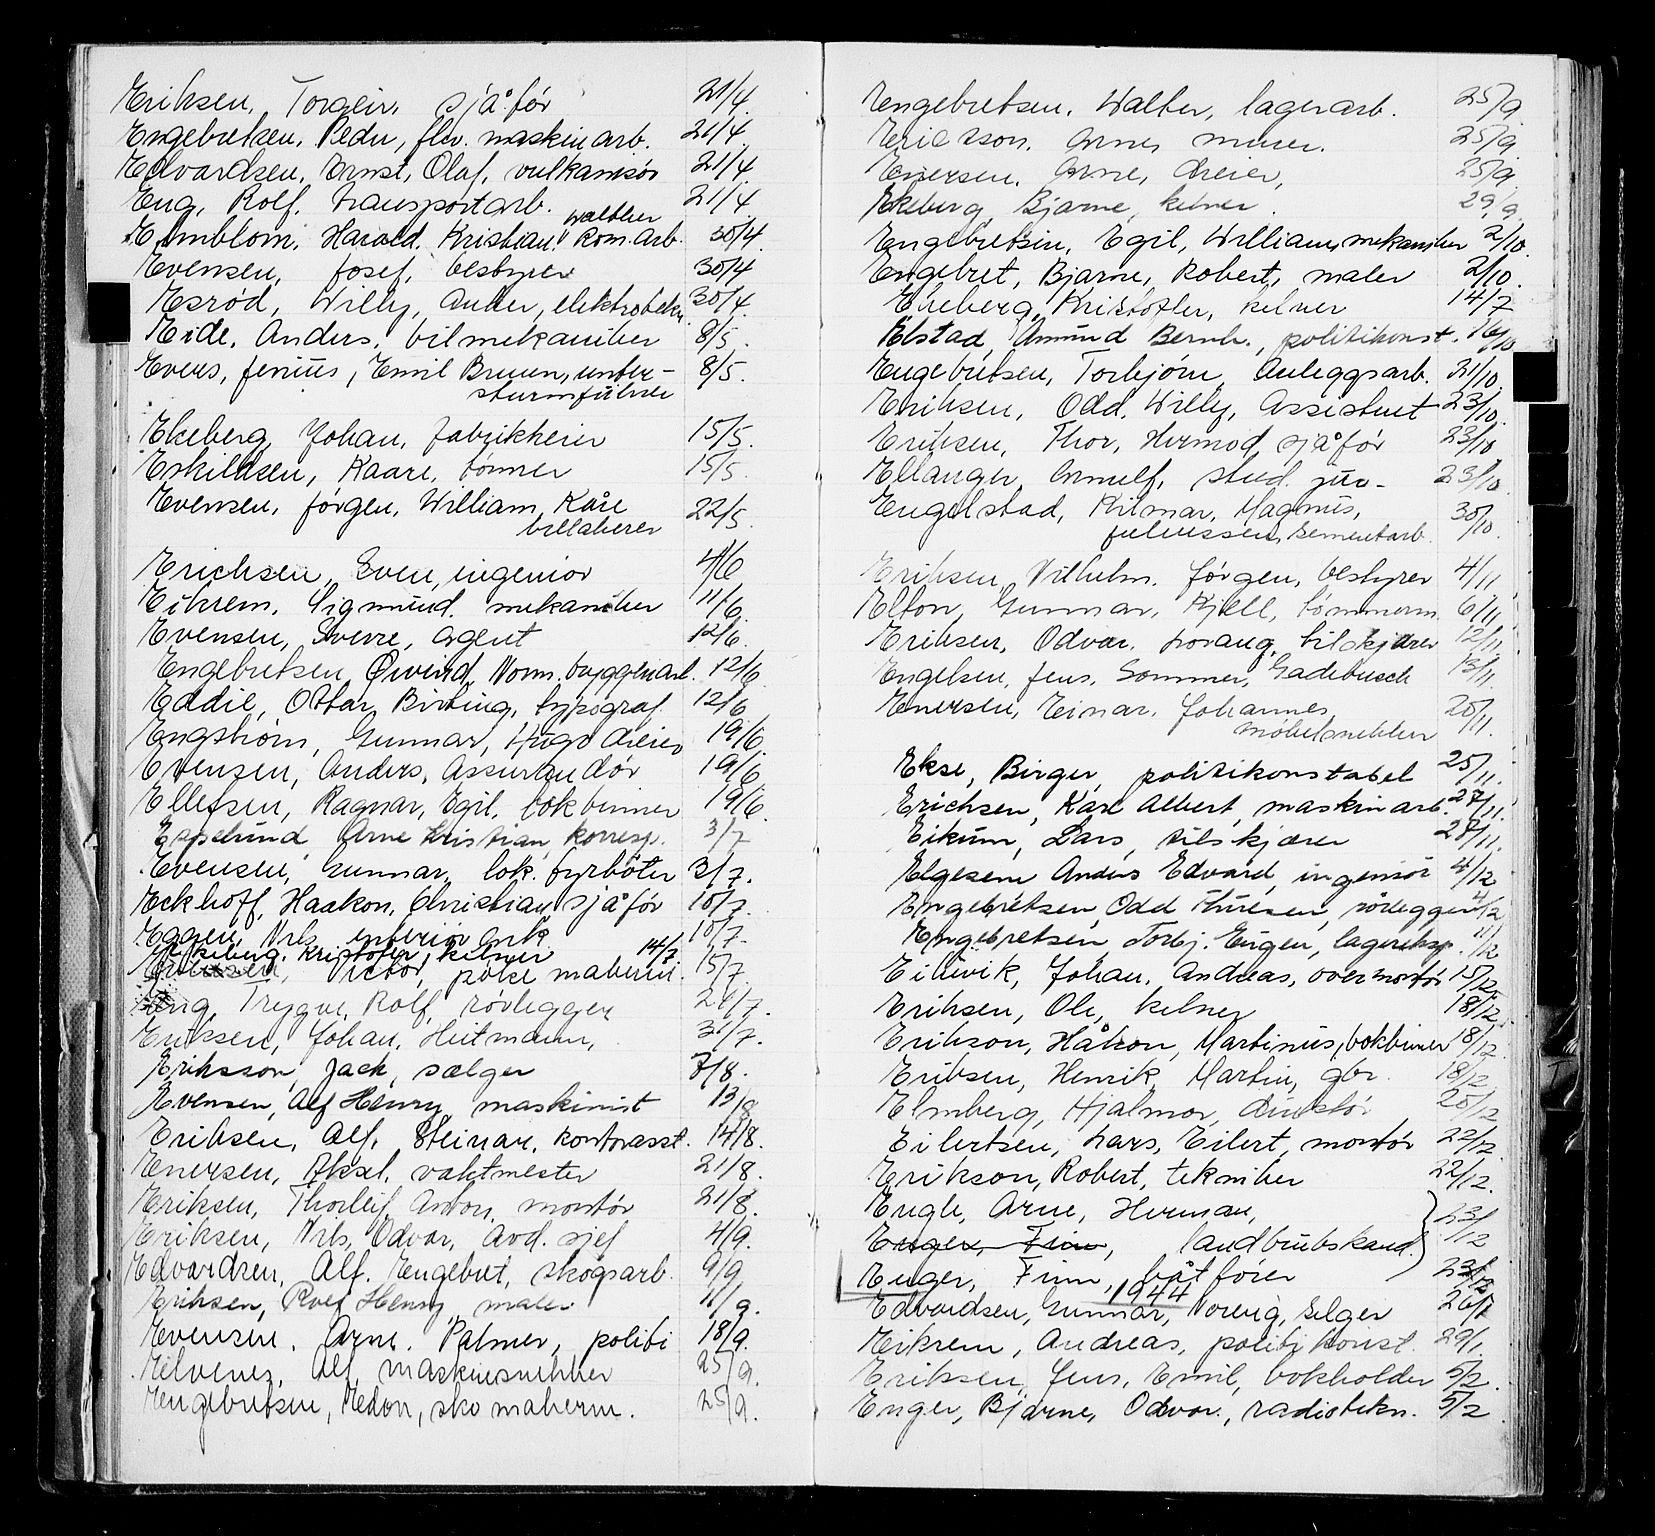 Eriksen, Torgeir, sjåfør 21/4.
Engebretsen, Peder, flev. maskinarb. 21/4.
Edvardsen, Ernst, Olaf, vulkanisør 21/4.
Eng, Rolf. transportart. 21/4
Walther
Emblom, Harald. Kristian, kom.arb. 30/4.
Evensen, Josef, bestyrer 30/4
Esrød, Willy, elektrotekn. 30/4.
Eide, Anders, bilmekaniker 8/5.
Evers, Jenius, Emil Bruun, unter- 8/5.
sturmführer
Ekeberg, Johan, fabrikkeier 15/5.
Eskildsen, Kaare, tømrer 15/5.
Evensen, Jørgen, William, Kåre 22/5.
billakerer
Erichsen, Sven, ingeniør 4/6
Eikrem, Sigmund, mekaniker 11/6.
Evensen, Sverre, Agent 12/6.
Engebretsen, Øivind, Norm. bryggeriarb. 12/6.
Eddie, Ottar, Birting, typograf 12/6
Engstrøm, Gunnar, Hugo dreier 19/6.
Evensen, Anders, Assurandør 19/6
Ellefsen, Ragnar, Egil, bokbinner 19/6.
Espelund Arne Kristian, korresp. 3/7
Evensen, Gunnar, lok. fyrbøter 3/7.
Eckhoff, Haakon, Christian, sjåfør 10/7.
Eggen, Nils, interiør ark. 10/7.
Ekeberg, Kristofer, kelner 14/7
Victor, pølsemakerm. 15/7
Eng, Trygve, Rolf, rørlegger 24/7.
Eriksen, Johan, Heitmann, 31/7.
Eriksson, Jack, sælger 7/8.
Evensen, Alf Henry, maskinist 13/8
Eriksen, Alf, Steinar, kontorasst. 14/8.
Enersen, Aksel, vaktmester 21/8.
Eriksen, Thorleif, Anton, montør 21/8.
Eriksen, Nils, Odvar, Avd. sjef 4/9.
Edvardsen, Alf, Engebret, skogsarb. 9/9
Eriksen, Rolf Henry, maler 11/9.
Evensen, Arne, Palmer, politi 18/9.
Elvenes, Alf, maskinsnekker 25/9.
Engebretsen, Edon, skomakerm. 25/9.
Engebretsen, Walter, lagerarb. 25/9.
Ericsson, Arne, murer. 25/9
Enersen, Arne, dreier, 25/9.
Ekeberg, Bjarne, kelner. 29/9.
Engebretsen, Egil, William, mekaniker 2/10.
Engebret, Bjarne, Robert, maler 2/10.
Ekeberg, Kristofer, kelner 14/7
Elstad, Amund Bernh., politikonst. 16/10
Engebretsen, Torbjørn, Anleggsarb. 21/10.
Eriksen, Odd, Willy, Assistent 23/10.
Eriksen, Thor, Hermod, sjåfør 23/10
Ellanger, Arnulf, stud. jur. 23/10.
Engelstad, Hilmar, Magnus, 30/10.
sementarb.
Eriksen, Vilhelm, Jørgen, bestyrer 4/11
Elton, Gunnar, Kjell, tømmerm. 6/11.
Eriksen, Odvar, tilskjærer 12/11
Engelsen, Jens, Sommer, Gadebusch 13/11.
Enersen, Einar, Johannes 20/11.
møbelsnekker
Ekse, Birger, politikonstabel 25/11.
Erichsen, Karl Albert, maskinarb. 27/11.
Eikum, Lars, tilskjærer 27/11.
Elgesem Anders Edvard, ingeniør 4/12
Engebretsen, Odd Thuresen, rørlegger 4/12
Engebretsen, Torbj. Eugen, lagereksp. 11/12
Johan, Andreas, overmontør 15/12.
Eriksen, Ole, kelner 18/12.
Erikson, Håkon, Martinius, bokbinner 18/12.
Eriksen, Henrik, Martin, gbr. 18/12
Elmberg, Hjalmar, direktør 20/12
Eilertsen, Lars, Eilert, montør 22/12.
Erikson, Robert, tekniker 22/12.
Engh, Arne, Herman, 23/12
Enger, Finn, landbrukskand.
Enger, Finn, båtfører 23/12
1944
Edvardsen, Gunnar, Norvig, selger 26/1
Eikrem, Andreas, politikonst. 29/1.
Eriksen, Jens, Emil, bokholder 5/2.
Enger, Bjarne, Odvar, radiotekn. 5/2.